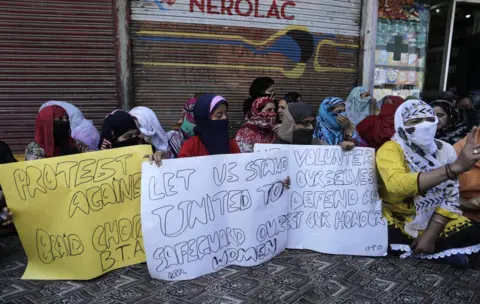 NEROLAC
PROTEST
AGAINST
BRAID CHOP
LET US
UNITED TO
SAFEGUARD OUR
WOMEN
VOLUNTAR
OURSELVES
DEFEND
OUR HONOUR